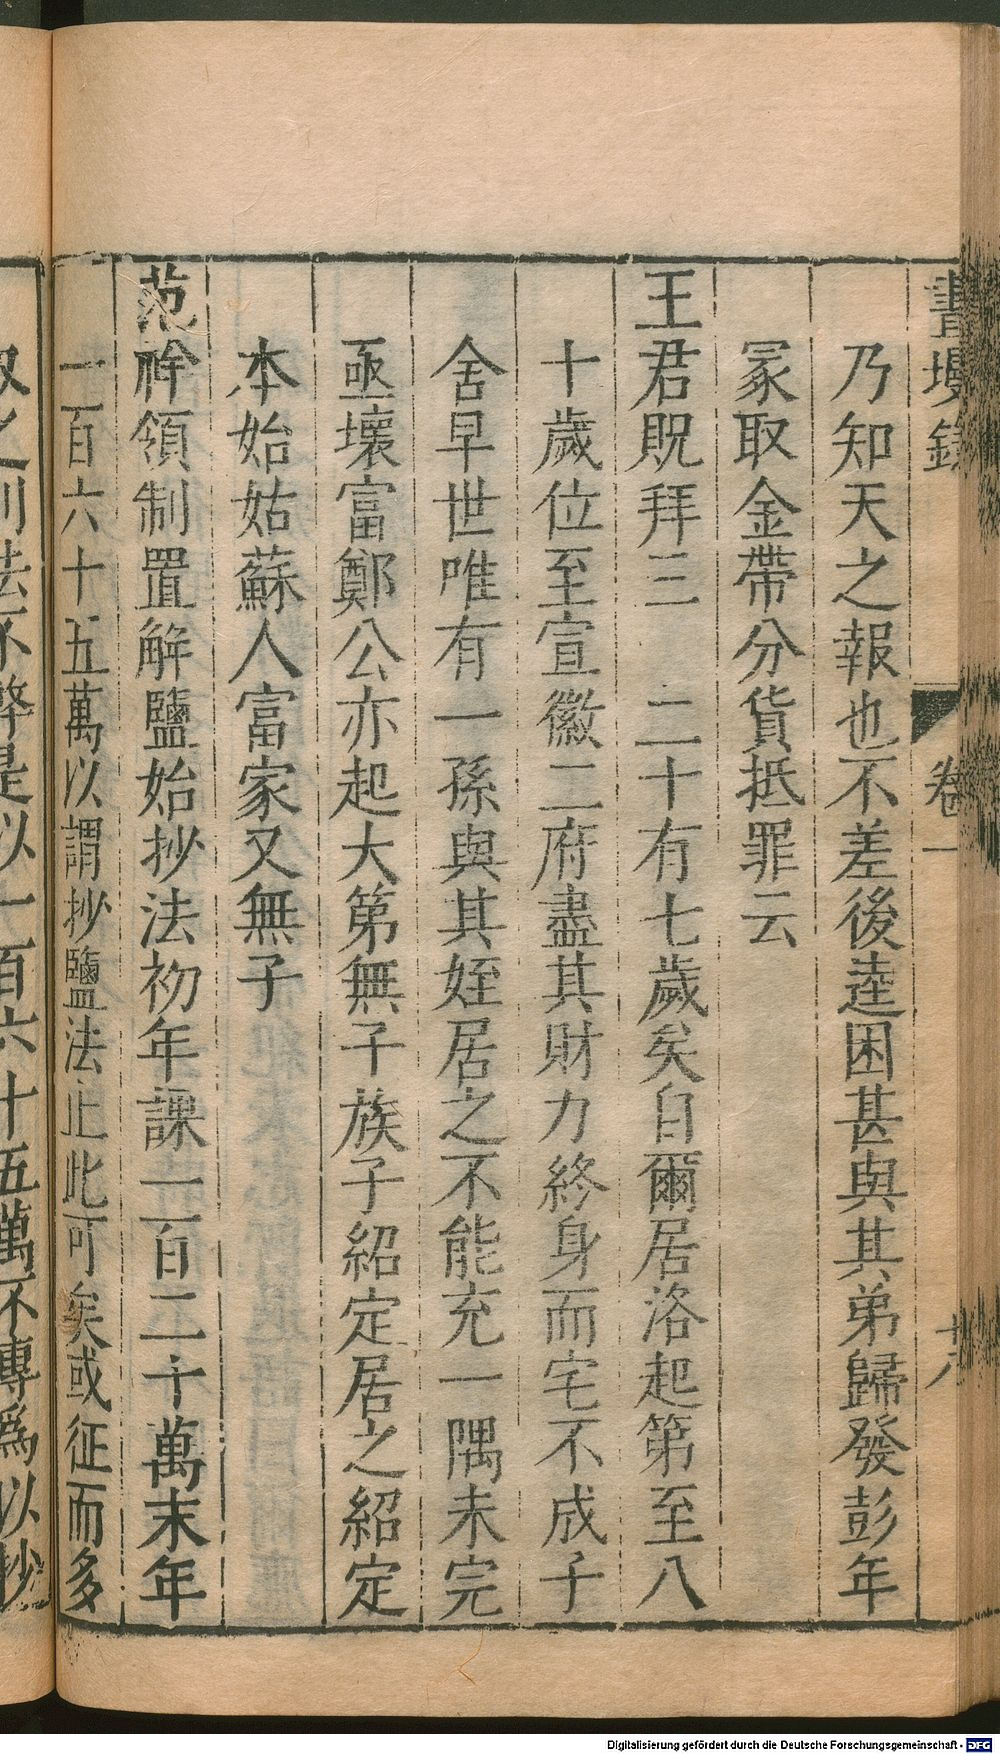 畫墁錄 卷一 十八
乃知天之報也不差後逵困甚與其弟歸發彭年
冡取金帶分貨抵罪云
王君貺拜三 二十有七歲矣自爾居洛起第至八
十歲位至宣徽二府盡其財力終身而宅不成子
舍早世唯有一孫與其姪居之不能充一隅未完
亟壞富鄭公亦起大第無子族子紹定居之紹定
本始姑蘇人富家又無子
范祥領制置解鹽始抄法初年課一百二十萬末年
一百六十五萬以謂抄鹽法止此可矣或征而多
取之則法不弊是以一百六十五萬不專爲以抄
Digitalisierung gefördert durch die Deutsche Forschungsgemeinschaft - DFG